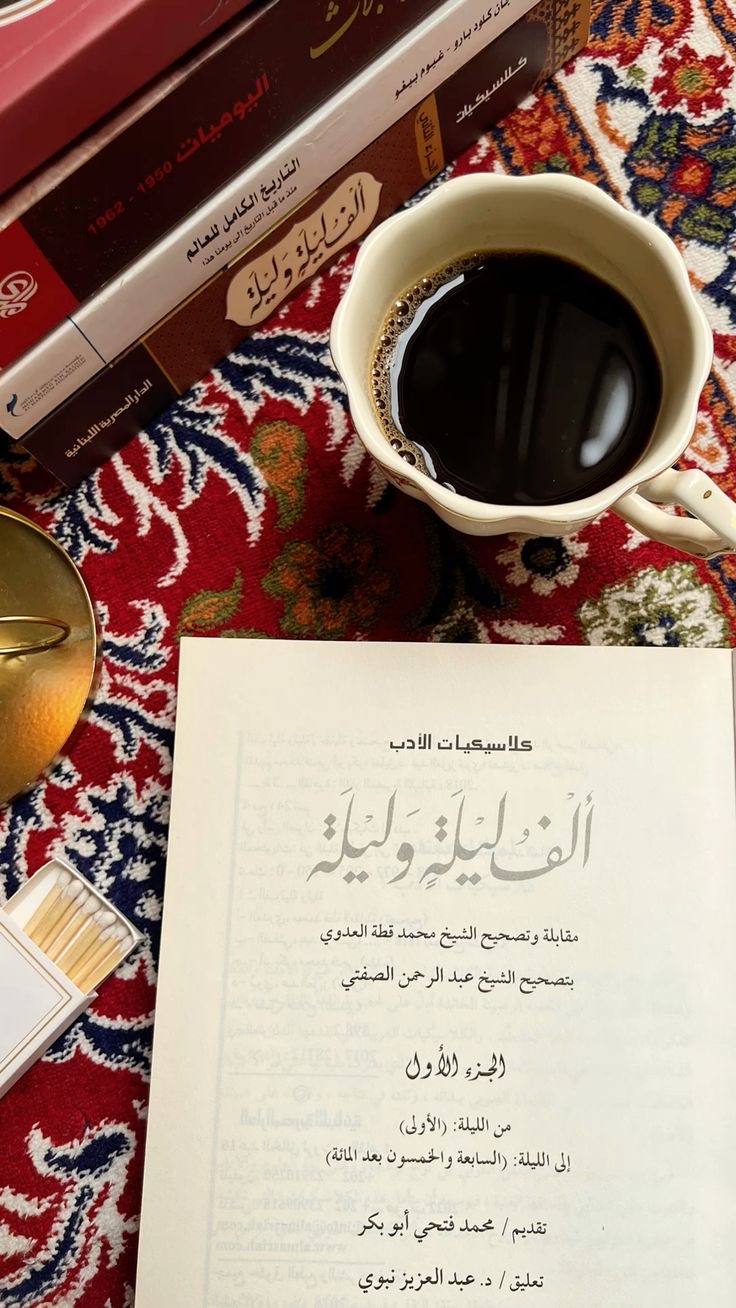 اليوميات 1950 - 1962
جان كلود بارو - غيوم بيغو
التاريخ الكامل للعالم
منذ ما قبل التاريخ الى يومنا هذا
كلاسيكيات
الجزء الثاني
ألف ليلة وليلة
الدار المصرية اللبنانية
كلاسيكيات الأدب
ألْفُ ليْلَةٍ وَليْلَة
مقابلة وتصحيح الشيخ محمد قطة العدوي
بتصحيح الشيخ عبد الرحمن الصفتي
الجزء الأول
من الليلة: (الأولى)
إلى الليلة: (السابعة والخمسون بعد المائة)
تقديم / محمد فتحي أبو بكر
تعليق / د. عبد العزيز نبوي